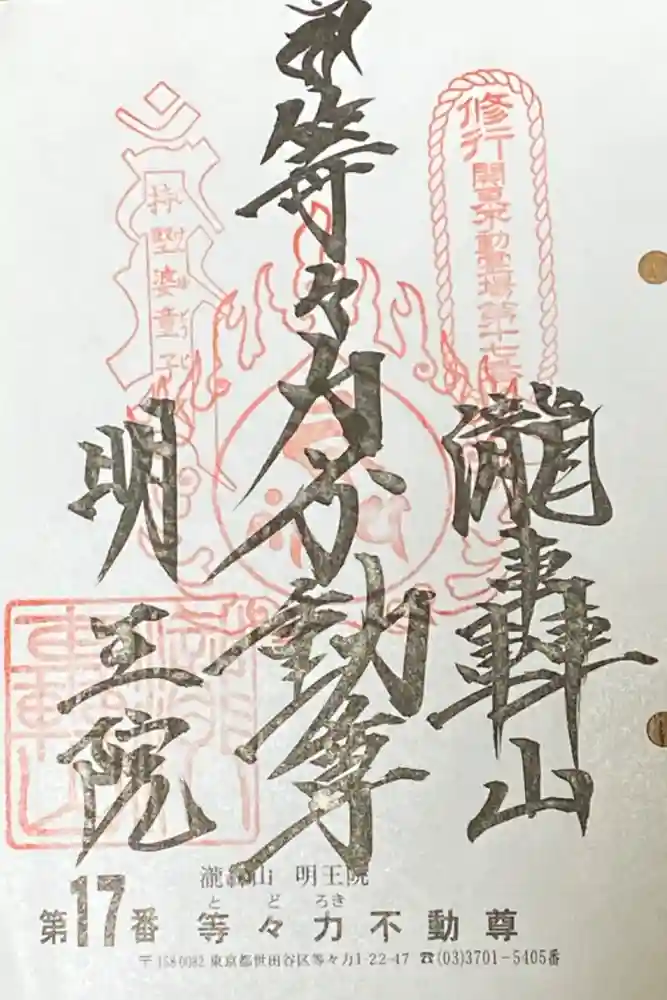 修行
関東不動霊場第十七番
持堅婆童子
等々力不動尊
瀧轟山
明
王院
瀧轟山 明王院
とどろき
第17番 等々力不動尊
〒158-0082 東京都世田谷区等々力1-22-47 ☎(03)3701-5405番